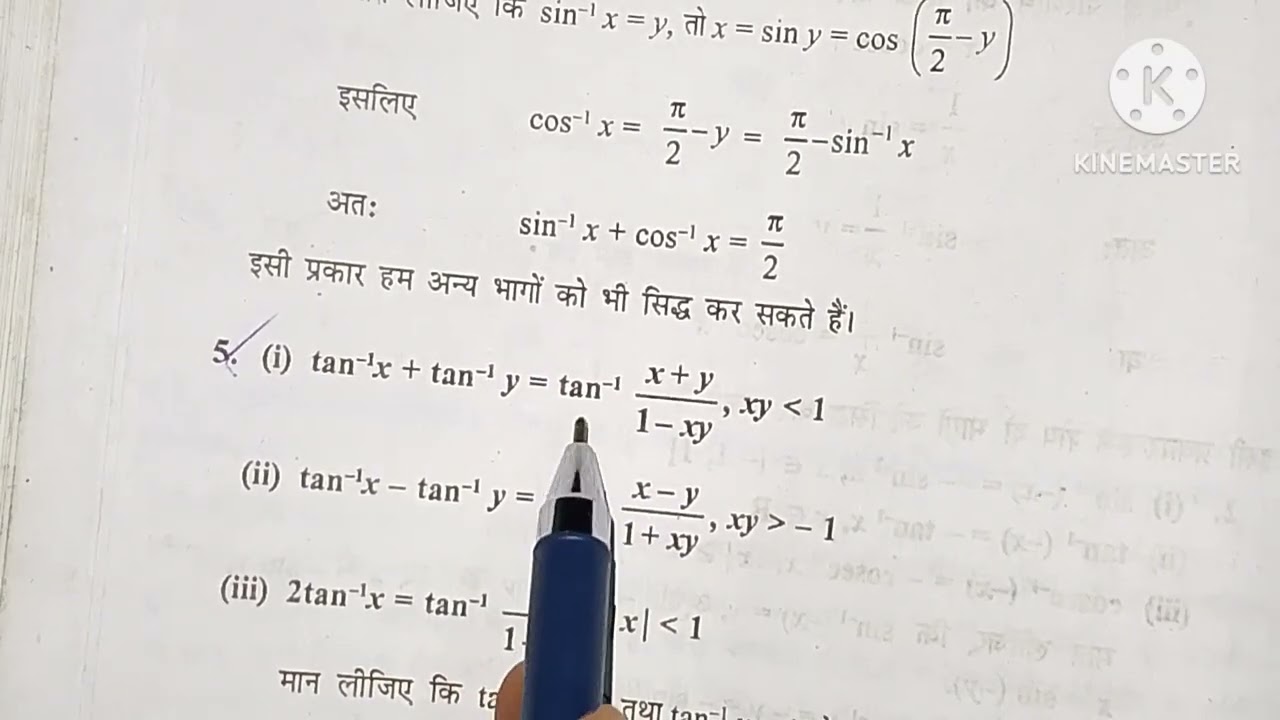 लीजिए कि sin⁻¹ x = y, तो x = sin y = cos (π/2 − y)
K
KINEMASTER
इसलिए cos⁻¹ x = π/2 − y = π/2 − sin⁻¹ x
अतः sin⁻¹ x + cos⁻¹ x = π/2
इसी प्रकार हम अन्य भागों को भी सिद्ध कर सकते हैं।
5. (i) tan⁻¹x + tan⁻¹ y = tan⁻¹ (x + y)/(1 − xy), xy < 1
(ii) tan⁻¹x − tan⁻¹ y = (x − y)/(1 + xy), xy > − 1
(iii) 2tan⁻¹x = tan⁻¹ x| < 1
मान लीजिए कि तथा tan⁻¹